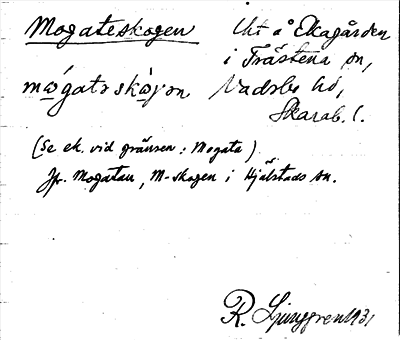 Mogateskogen
Ut å Ekagården
i Trästena sn,
Vadsbo hd,
Skarab. l.
mɷ́gatəskɷ̀gən
(Se ek. vid gränsen: Mogata).
Jfr. Mogatan, M-skogen i Hjälstads sn.
R. Ljunggren 1931